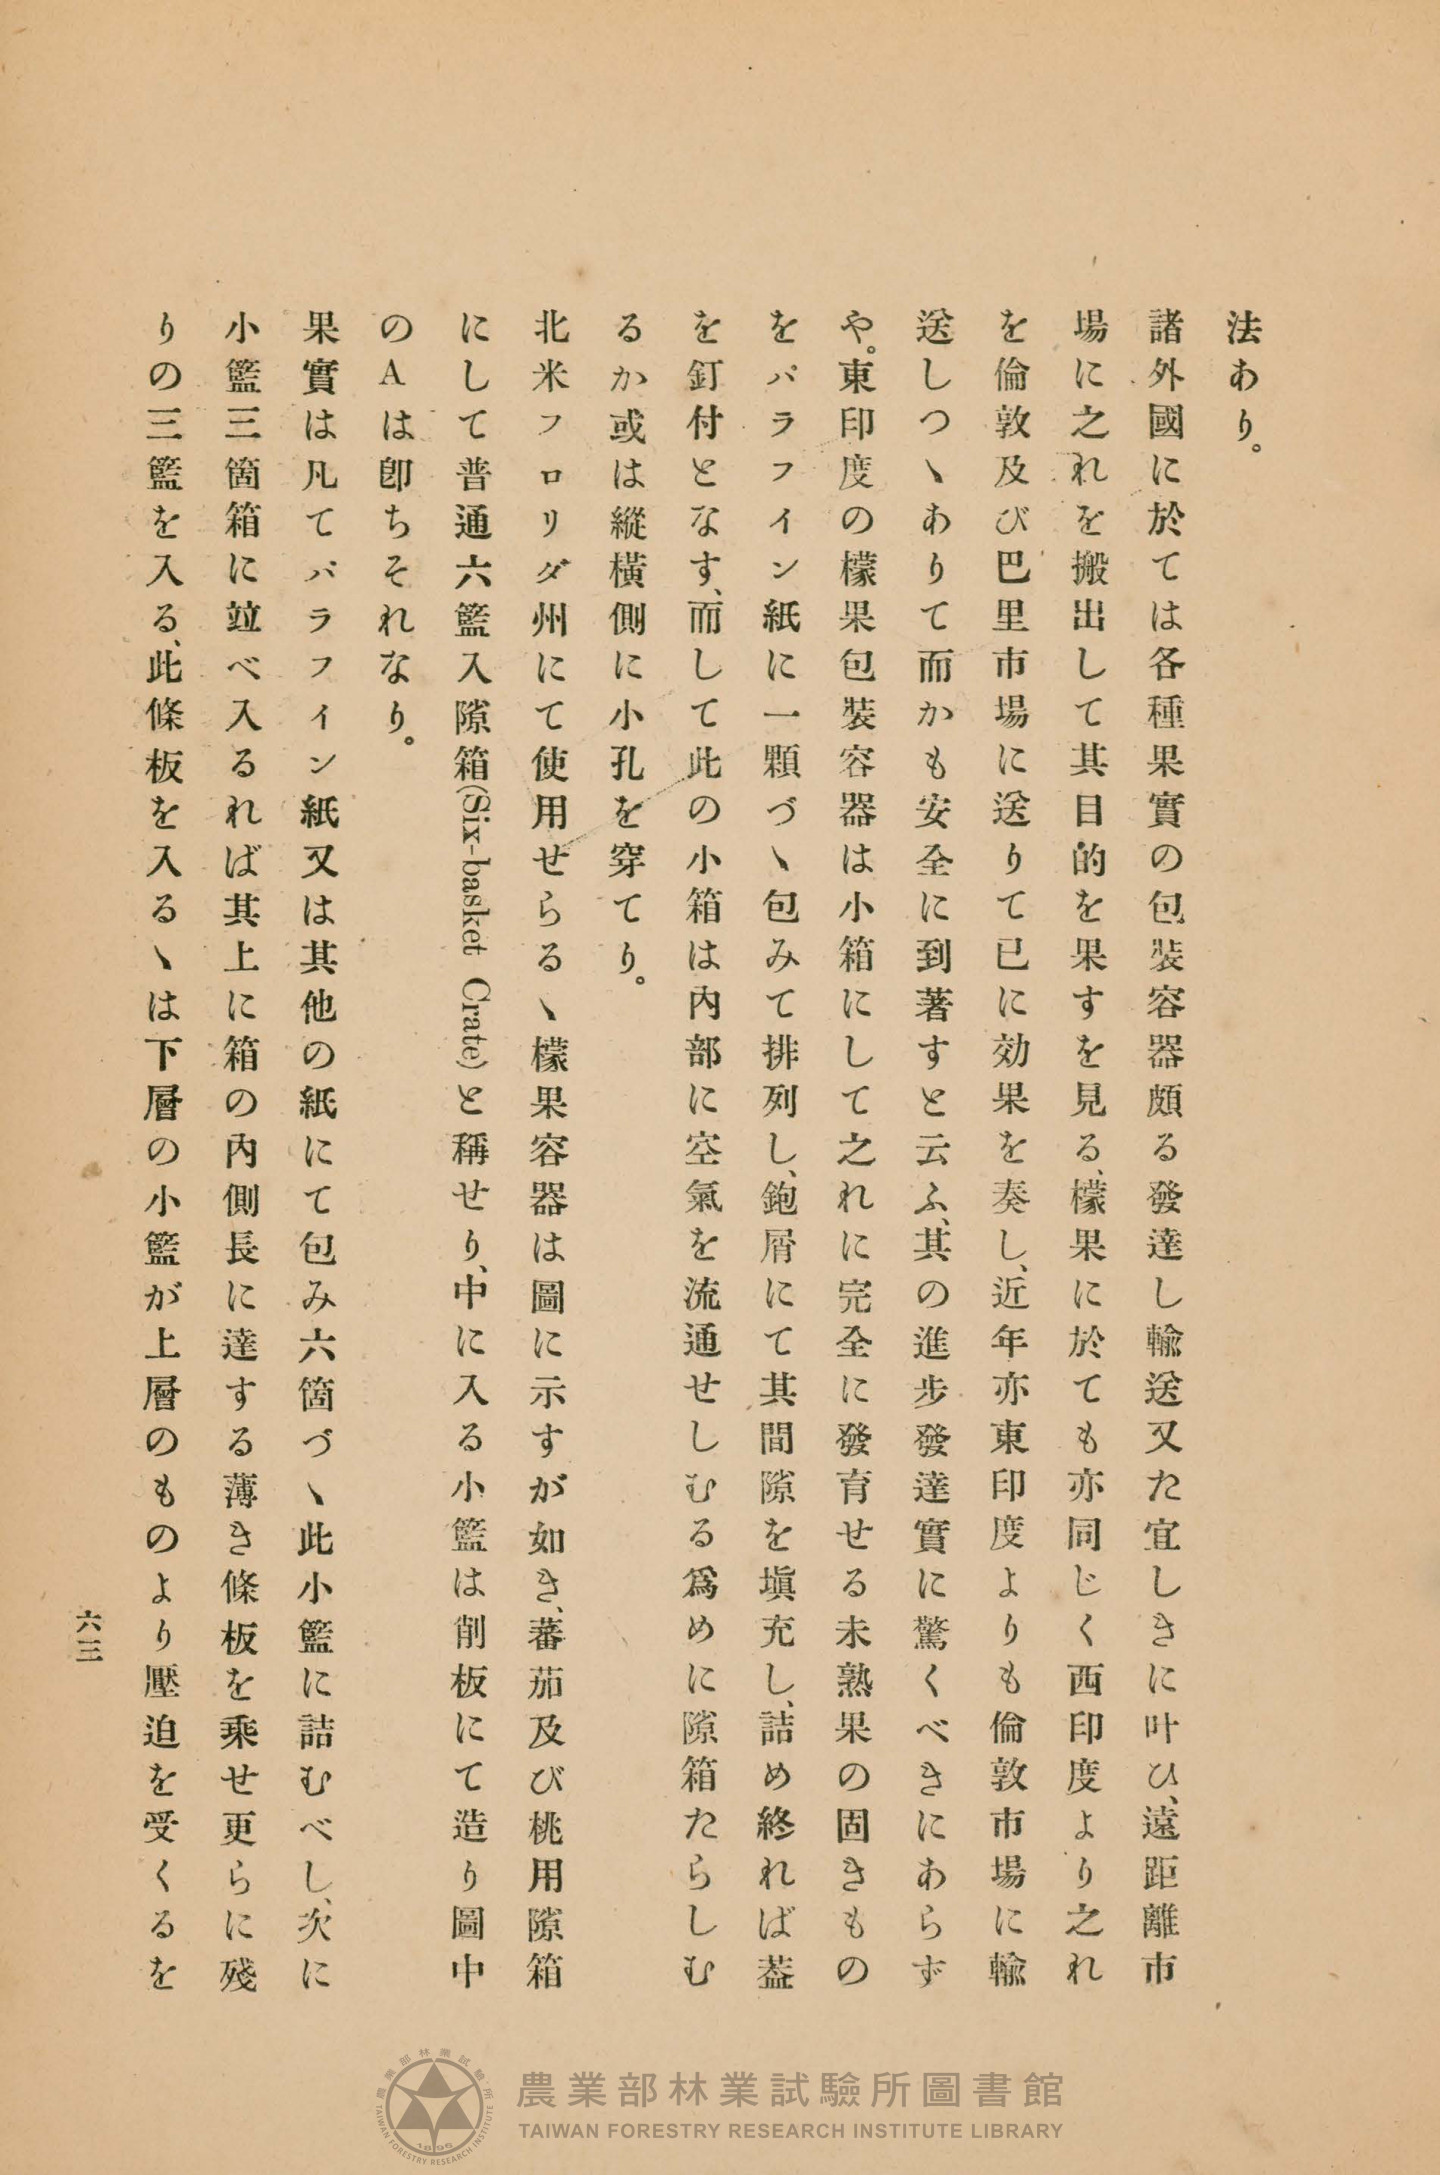 法あり。
諸外國に於ては各種果實の包裝容器頗る發達し輸送又た宜しきに叶ひ、遠距離市
場に之れを搬出して其目的を果すを見る、檬果に於ても亦同じく西印度より之れ
を倫敦及び巴里市場に送りて已に効果を奏し、近年亦東印度よりも倫敦市場に輸
送しつヽありて而かも安全に到著すと云ふ、其の進步發達實に驚くべきにあらず
や。東印度の檬果包裝容器は小箱にして之れに完全に發育せる未熟果の固きもの
をパラフイン紙に一顆づヽ包みて排列し、鉋屑にて其間隙を塡充し、詰め終れば蓋
を釘付となす、而して此の小箱は內部に空氣を流通せしむる爲めに隙箱たらしむ
るか或は縱橫側に小孔を穿てり。
北米フロリダ州にて使用せらるヽ檬果容器は圖に示すが如き、蕃茄及び桃用隙箱
にして普通六籃入隙箱(Six-basket Crate)と稱せり、中に入る小籃は削板にて造り圖中
のAは卽ちそれなり。
果實は凡てバラフイン紙又は其他の紙にて包み六箇づヽ此小籃に詰むべし、次に
小籃三箇箱に竝べ入るれば其上に箱の內側長に達する薄き條板を乘せ更らに殘
りの三籃を入る、此條板を入るヽは下層の小籃が上層のものより壓迫を受くるを
六三
農業部林業試驗所圖書館
TAIWAN FORESTRY RESEARCH INSTITUTE LIBRARY
農業部林業試驗所
TAIWAN FORESTRY RESEARCH INSTITUTE
1896